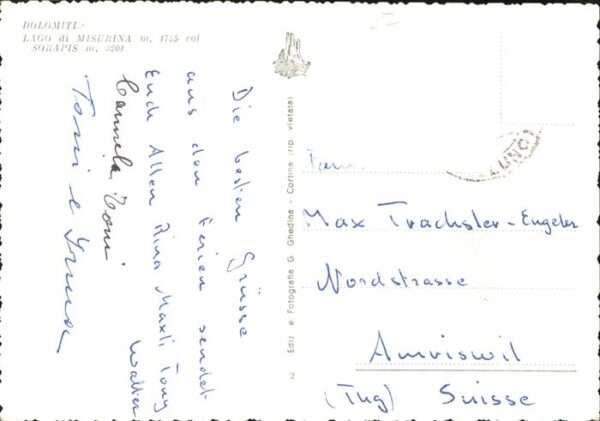 DOLOMITI:
LAGO di MISURINA m. 1755 col
SORAPIS m. 3201
Die besten Grüsse
aus den Ferien sendet
Euch Allen Rina Maxli Tony
Walter
Carmela Toni
Toni e Irma
2 Ediz. e Fotografia G. Ghedina - Cortina (rip. vietata)
LUNO
Fam.
Max Trachsler-Engeler
Nordstrasse
Amriswil
(Thg) Suisse